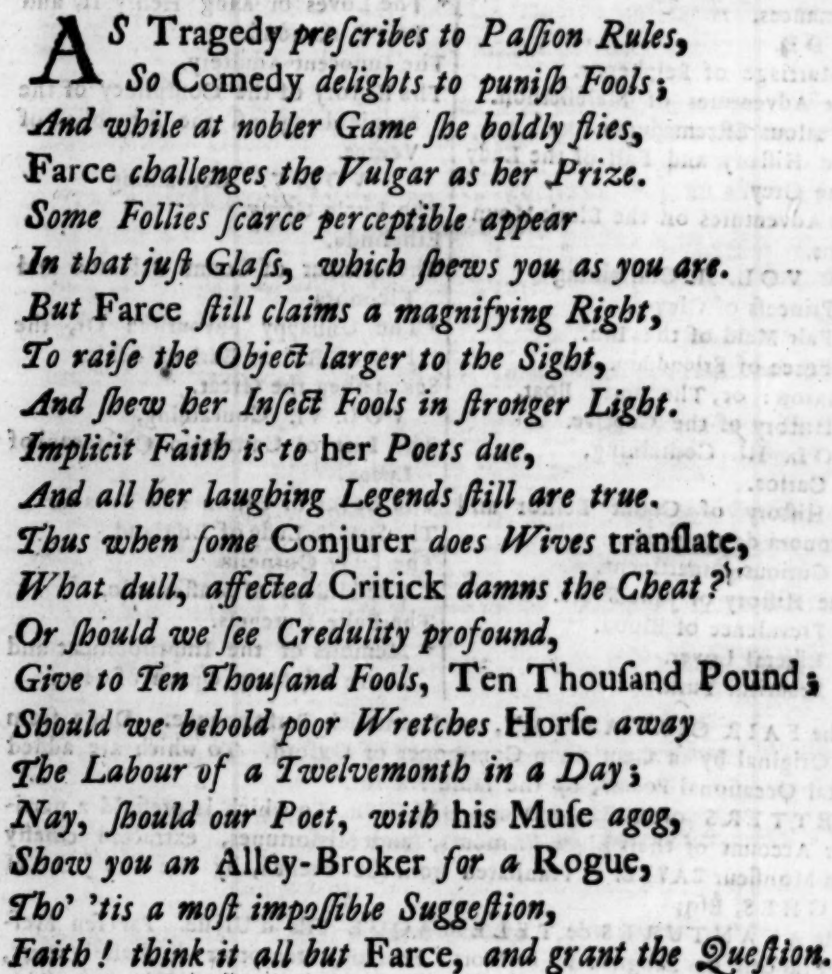 AS Tragedy preſcribes to Paſſion Rules,
So Comedy delights to puniſh Fools;
And while at nobler Game ſhe boldly flies,
Farce challenges the Vulgar as her Prize.
Some Follies ſcarce perceptible appear
In that juſt Glaſs, which ſhews you as you are.
But Farce ſtill claims a magnifying Right,
To raiſe the Object larger to the Sight,
And ſhew her Inſect Fools in ſtronger Light.
Implicit Faith is to her Poets due,
And all her laughing Legends ſtill are true.
Thus when ſome Conjurer does Wives tranſlate,
What dull, affected Critick damns the Cheat?
Or ſhould we ſee Credulity profound,
Give to Ten Thouſand Fools, Ten Thouſand Pound;
Should we behold poor Wretches Horſe away
The Labour of a Twelvemonth in a Day;
Nay, ſhould our Poet, with his Muſe agog,
Show you an Alley-Broker for a Rogue,
Tho' 'tis a moſt impoſſible Suggeſtion,
Faith! think it all but Farce, and grant the Queſtion.